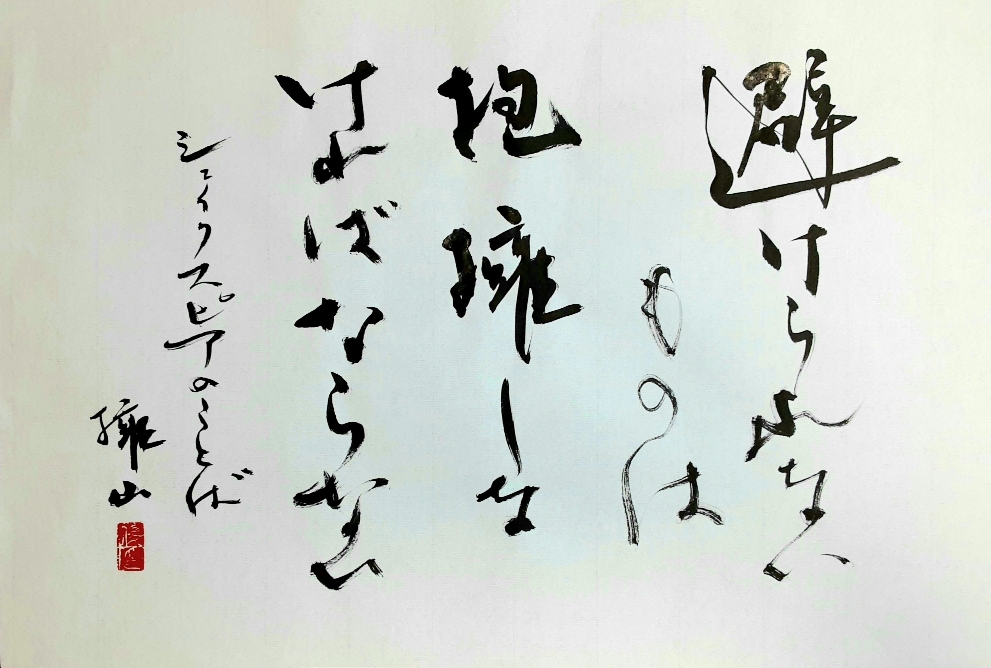 避けられない
ものは
抱擁しな
ければならない
シェイクスピアのことば
擁山